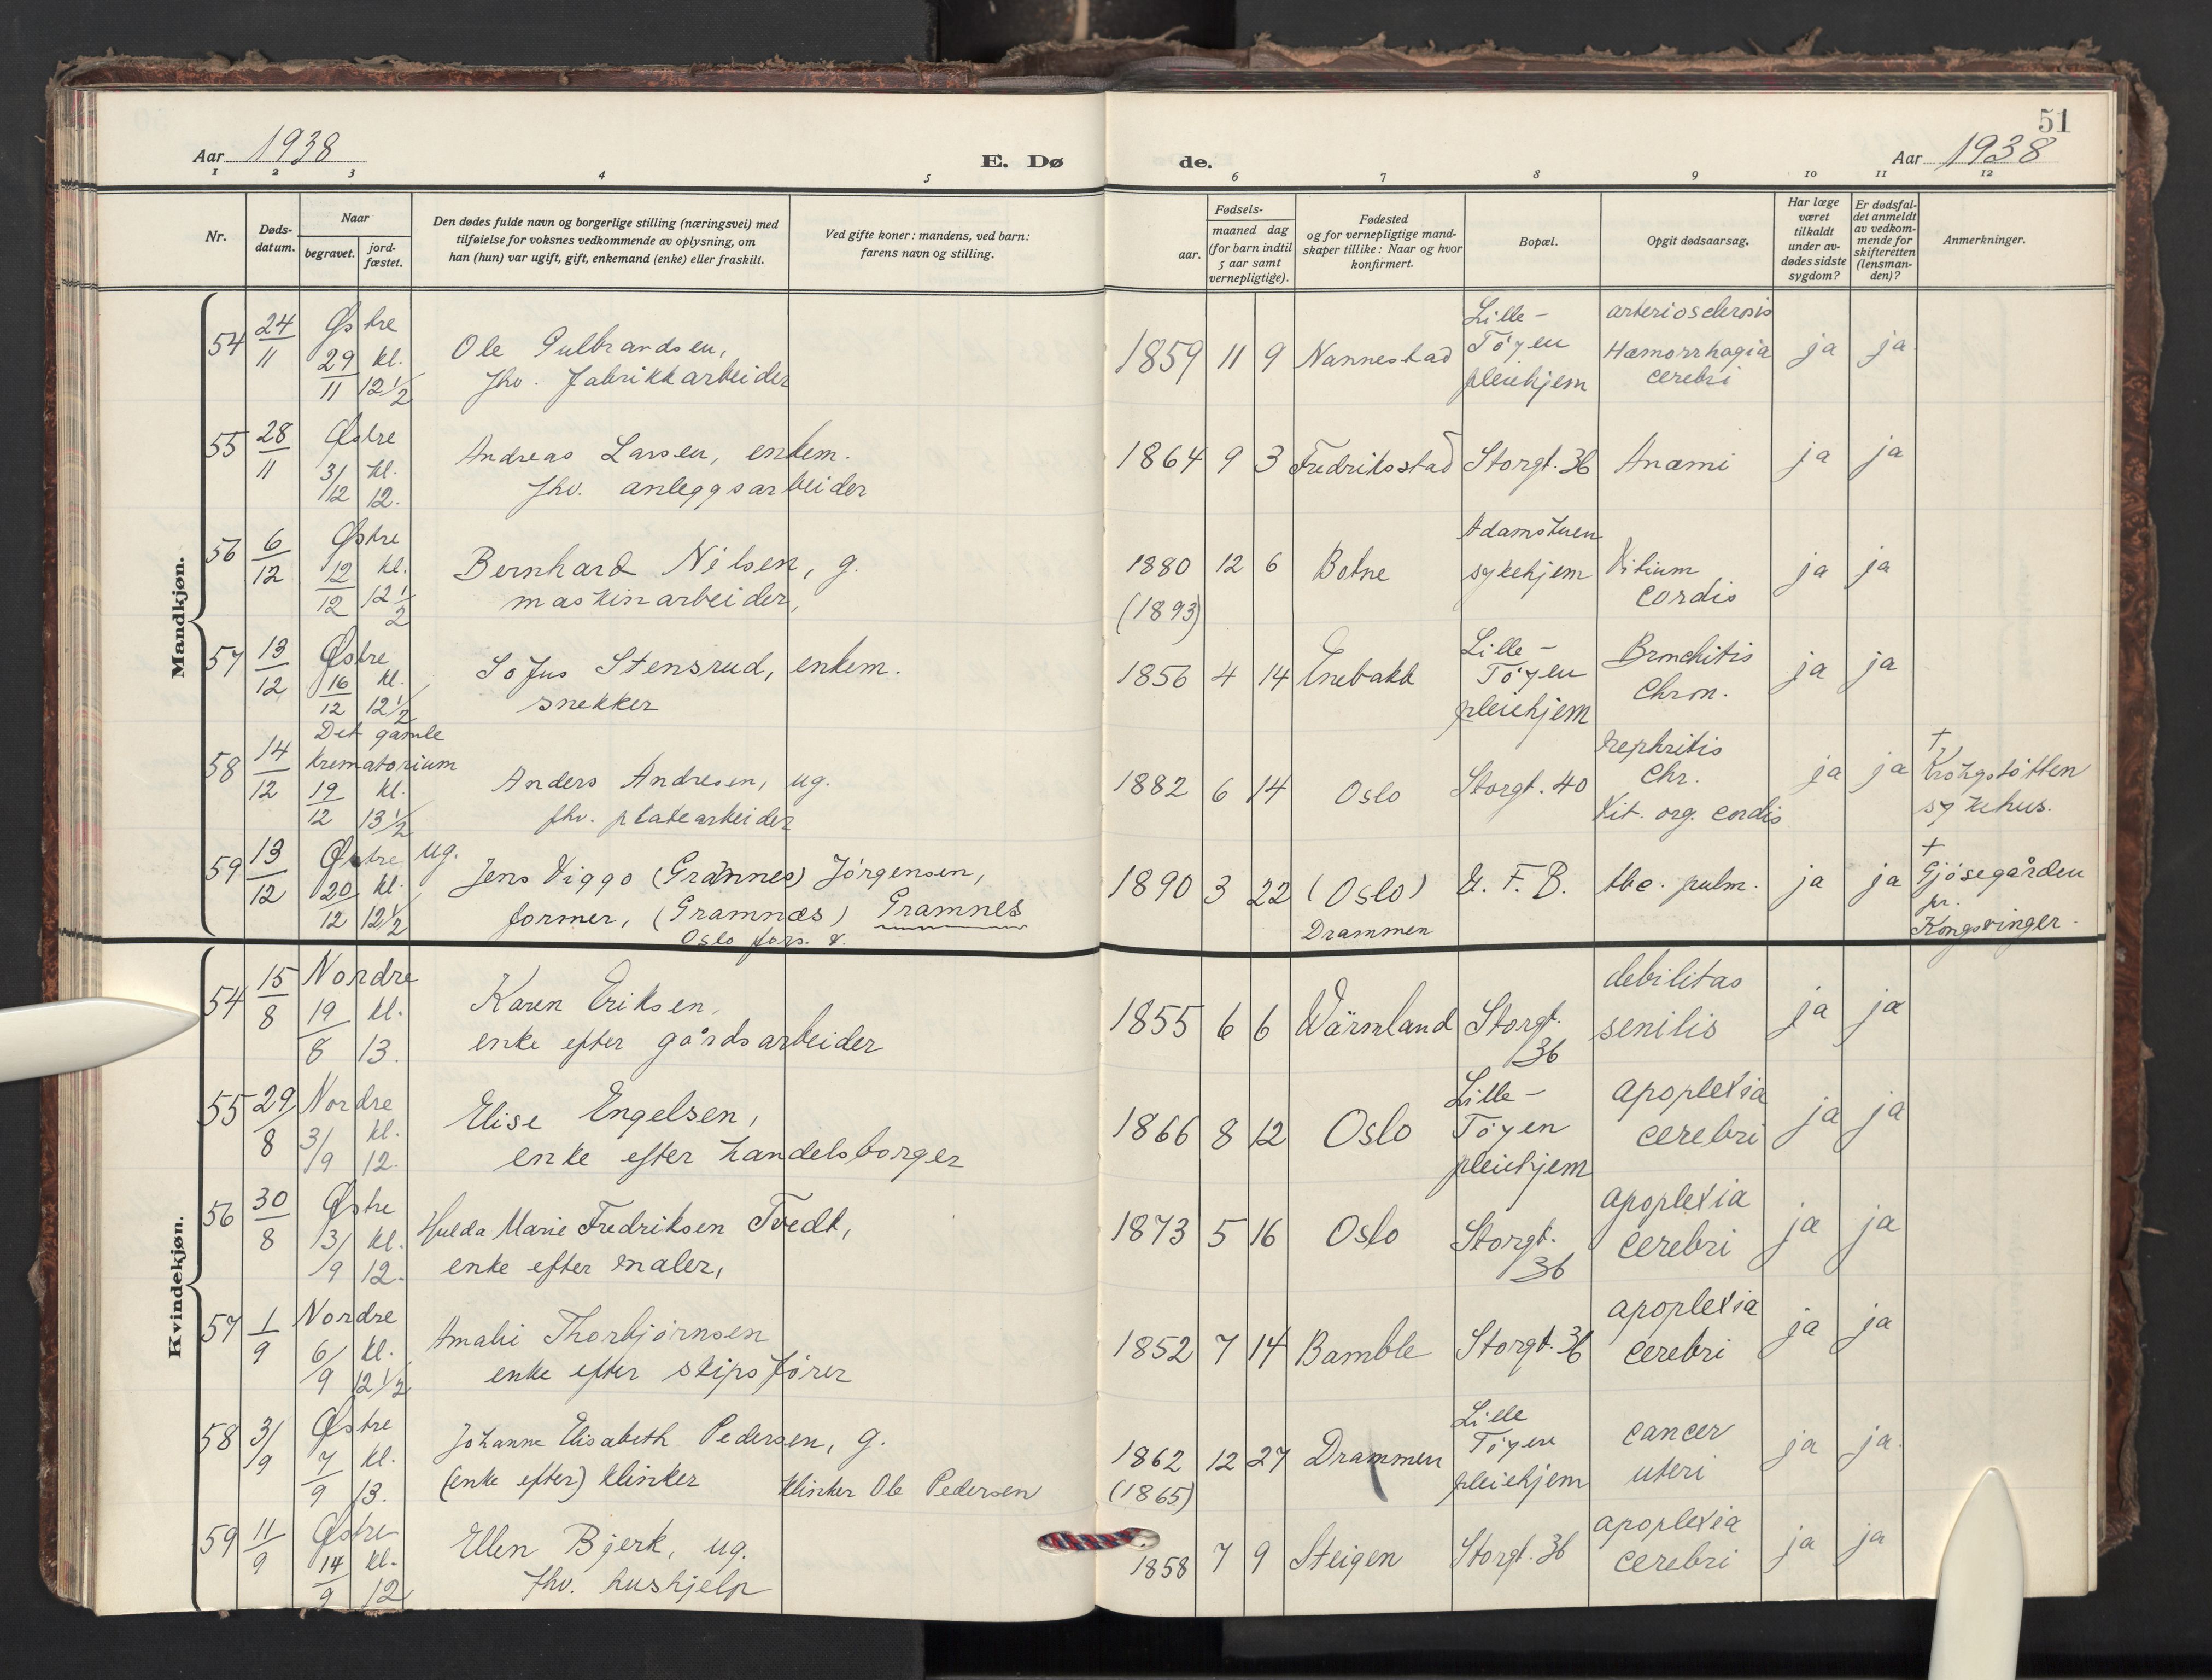 51
Aar 1938
E. Dø
de.
Aar 1938
1 2 3 4 5 6 7 8 9 10 11 12
Nr.
Døds-
datum.
Naar
begravet.
jord-
fæstet.
Den dødes fulde navn og borgerlige stilling (næringsvei) med
tilføielse for voksnes vedkommende av oplysning, om
han (hun) var ugift, gift, enkemand (enke) eller fraskilt.
Ved gifte koner: mandens, ved barn:
farens navn og stilling.
Fødsels-
aar.
maaned dag
(for barn indtil
5 aar samt
vernepligtige).
Fødested
og for vernepligtige mand-
skaper tillike: Naar og hvor
konfirmert.
Bopæl.
Opgit dødsaarsag.
Har læge
været
tilkaldt
under av-
dødes sidste
sygdom?
Er dødsfal-
det anmeldt
av vedkom-
mende for
skifteretten
(lensman-
den)?
Anmerkninger.
Mandkjøn.
54 24/11 Østre 29/11 kl. 12 1/2
Ole Gulbrandsen,
fhv. fabrikkarbeider
1859 11 9 Nannestad
Lille-
Töyen
pleiehjem
arteriosclerosis
Hæmorrhagia
cerebri
ja ja
55 28/11 Østre 3/12 kl. 12.
Andreas Larsen, enkem.
fhv. anleggsarbeider
1864 9 3 Fredriksstad Storgt. 36 Anæmi ja ja
56 6/12 Østre 12/12 kl. 12 1/2
Bernhard Nilsen, g.
maskinarbeider,
1880 12 6 Botne
(1893)
Adamstuen
sykehjem
Vitium
cordis
ja ja
57 13/12 Østre 16/12 kl. 12 1/2
Sofus Stensrud, enkem.
snekker
1856 4 14 Enebakk
Lille-
Töyen
pleiehjem
Bronchitis
Chron.
ja ja
58 14/12 Det gamle
krematorium
19/12 kl. 13 1/2
Anders Andresen, ug.
fhv. platearbeider
1882 6 14 Oslo Storgt. 40
nephritis
chr.
Vit. org. cordis
ja ja
†
Krohgstøtten
sykehus.
59 13/12 Østre 20/12 kl. 12 1/2
ug.
Jens Viggo (Grannes) Jörgensen,
former, (Gramnæs) Gramnes
Oslo fors. v.
1890 3 22 (Oslo)
Drammen
U. F. B. tbc. pulm. ja ja
†
Gjøsegården
pr.
Kongsvinger.
Kvindekjøn.
54 15/8 Nordre 19/8 kl. 13.
Karen Eriksen,
enke efter gårdsarbeider
1855 6 6 Wärmland
Storgt.
36
debilitas
senilis
ja ja
55 29/8 Nordre 3/9 kl. 12.
Elise Engelsen,
enke efter handelsborger
1866 8 12 Oslo
Lille-
Töyen
pleiehjem
apoplexia
cerebri
ja ja
56 30/8 Østre 3/9 kl. 12.
Hulda Marie Fredriksen Tvedt,
enke efter maler,
1873 5 16 Oslo
Storgt.
36
apoplexia
cerebri
ja ja
57 1/9 Nordre 6/9 kl. 12 1/2
Amalie Thorbjørnsen
enke efter skipsfører
1852 7 14 Bamble Storgt. 36
apoplexia
cerebri
ja ja
58 3/9 Østre 7/9 kl. 13.
Johanne Elisabeth Pedersen, g.
(enke efter) klinker
klinker Ole Pedersen
1862 12 27 Drammen
(1865)
Lille
Töyen
pleiehjem
cancer
uteri
ja ja.
59 11/9 Østre 14/9 kl. 12
Ellen Bjerk, ug.
fhv. hushjelp
1858 7 9 Steigen Storgt. 36
apoplexia
cerebri
ja ja